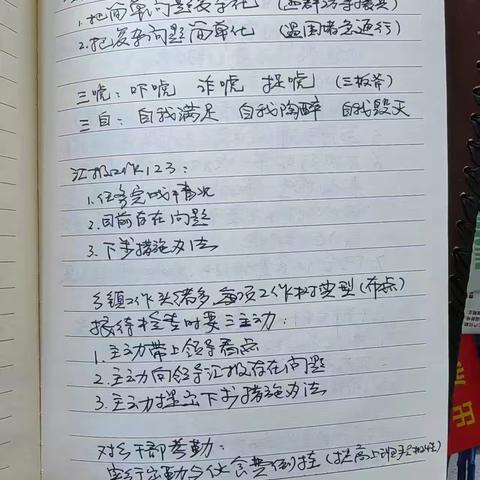 1.把简单问题复杂化
2.把复杂问题简单化
三唬：吓唬 诈唬 捉唬 （三板斧）
三自：自我满足 自我陶醉 自我毁灭
汇报工作123：
1.任务完成情况
2.目前存在问题
3.下步措施办法
乡镇工作头绪多，每项工作树典型（布点）
接待检查时要三主动：
1.主动带上领导看点
2.主动向领导汇报存在问题
3.主动提出下步措施办法
对乡干部考勤：
实行出勤与伙食费倒挂